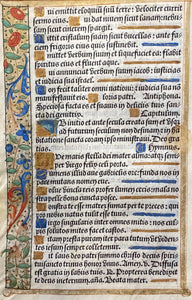 ni emittet eloquiū suū terre: velociter currit
sermo eius.
Qui dat niuem sicut lanam: nebu-
lam sicut cinerem spargit.
Mittit cristallum suam sicut buccellas: ante faciem
frigoris eius quis sustinebit.
Emittet verbum suum et liquefaciet ea: flabit
spiritus eius et fluent aque.
Qui annunciat verbum suum iacob: iusticias et
iudicia sua israel.
Non fecit taliter omni nationi: et iudicia sua non
manifestauit eis.
Gloria patri. Antiphona.
Speciosa facta es et suauis in deliciis tuis san-
cta dei genitrix.
ab inicio et ante secula creata sum et vsq̄
ad futurum seculum non desinam et in ha-
bitatione sancta coram ipso ministraui. Deo
gratias.
Ave maris stella dei mater alma: atq̄
semper virgo felix celi porta.
Sumens illud aue gabrielis ore: funda nos in
pace mutans nomen eue.
Solue vincla reis profer lumen cecis mala no-
stra pelle bona cuncta posce.
Monstra te esse matrem sumat per te preces qui
pro nobis natus tulit esse tuus.
Virgo singularis inter omnes mitis nos culpis
solutos mites fac et castos.
Vitam presta puram iter para tutum vt videntes
iesum semper colletemur.
Sit laus deo patri summo christo decus spiritui
sancto trinus honor vnus. Amen. V. Diffusa
est gratia in labiis tuis. R. Propterea benedixit te
deus ineternum. aña. Beata mater.